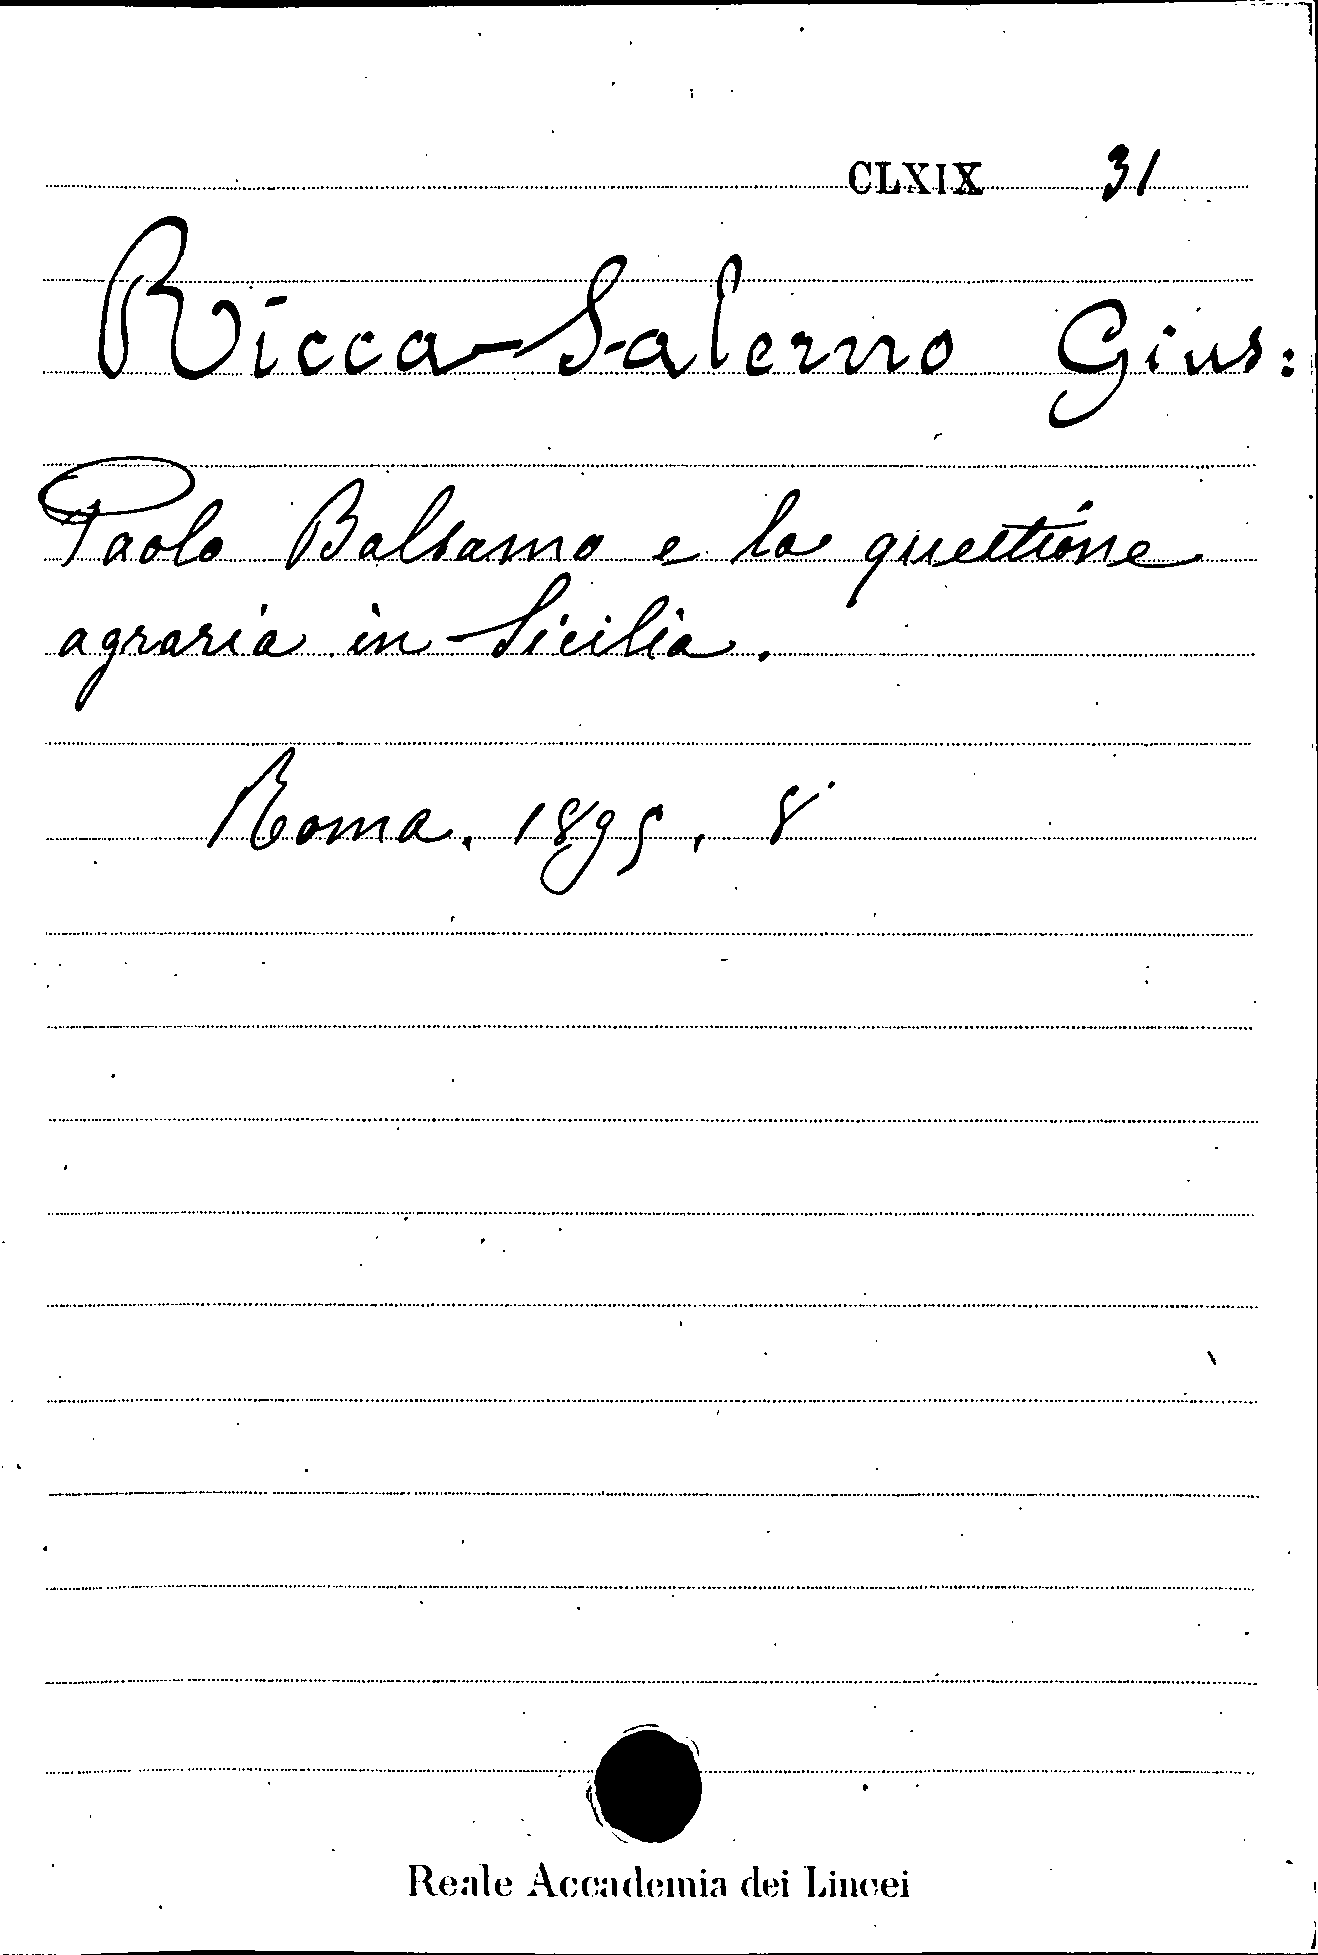 CLXIX 31
Ricca-Salerno Gius:
Paolo Balsamo e la questione
agraria in Sicilia.
Roma. 1895. 8°
Reale Accademia dei Lincei